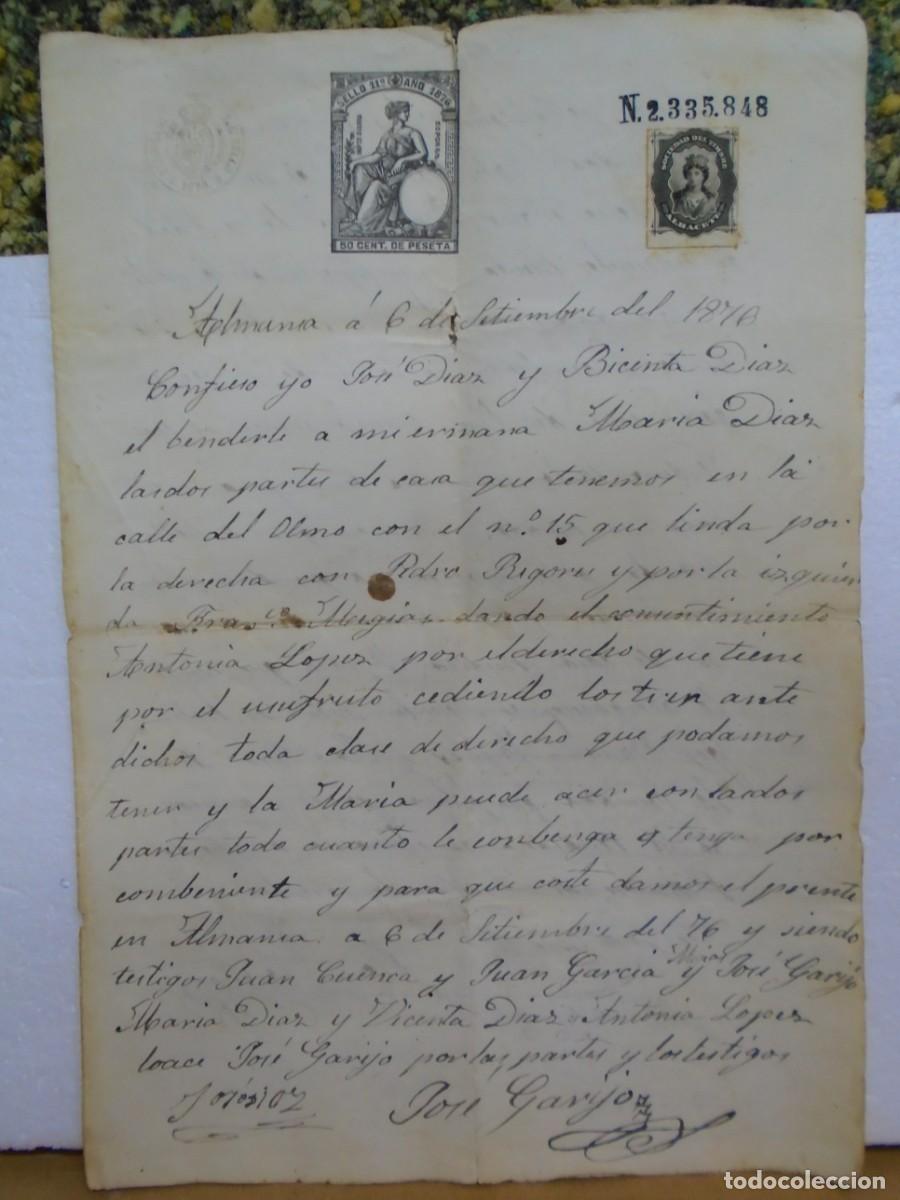 SELLO 11º AÑO 1876
50 CENT. DE PESETA
N.2.335.848
SOCIEDAD DEL TIMBRE
ALBACETE
Almansa á 6 de Setiembre del 1876
Confieso yo José Diaz y Bicenta Diaz
el benderle a mi ermana Maria Diaz
lasdos partes de casa que tenemos en la
calle del Olmo con el nº 15 que linda por
la derecha con Pedro y por la izquier
da Franco. Megias dando el consentimiento
Antonia Lopez por elderecho que tiene
por el usufruto cediendo los tres ante
dichos toda clase de derecho que podamos
tener y la Maria puede acer con lasdos
partes todo cuanto le conbenga y tenga por
combeniente y para que coste damos el presente
en Almansa a 6 de Setiembre del 76 y siendo
testigos Juan Cuenca y Juan Garcia y José Garijo
Maria Diaz y Vicenta Diaz Antonia Lopez
loace José Garijo por las partes y lostestigos
José Garijo
todocoleccion
todocoleccion.net